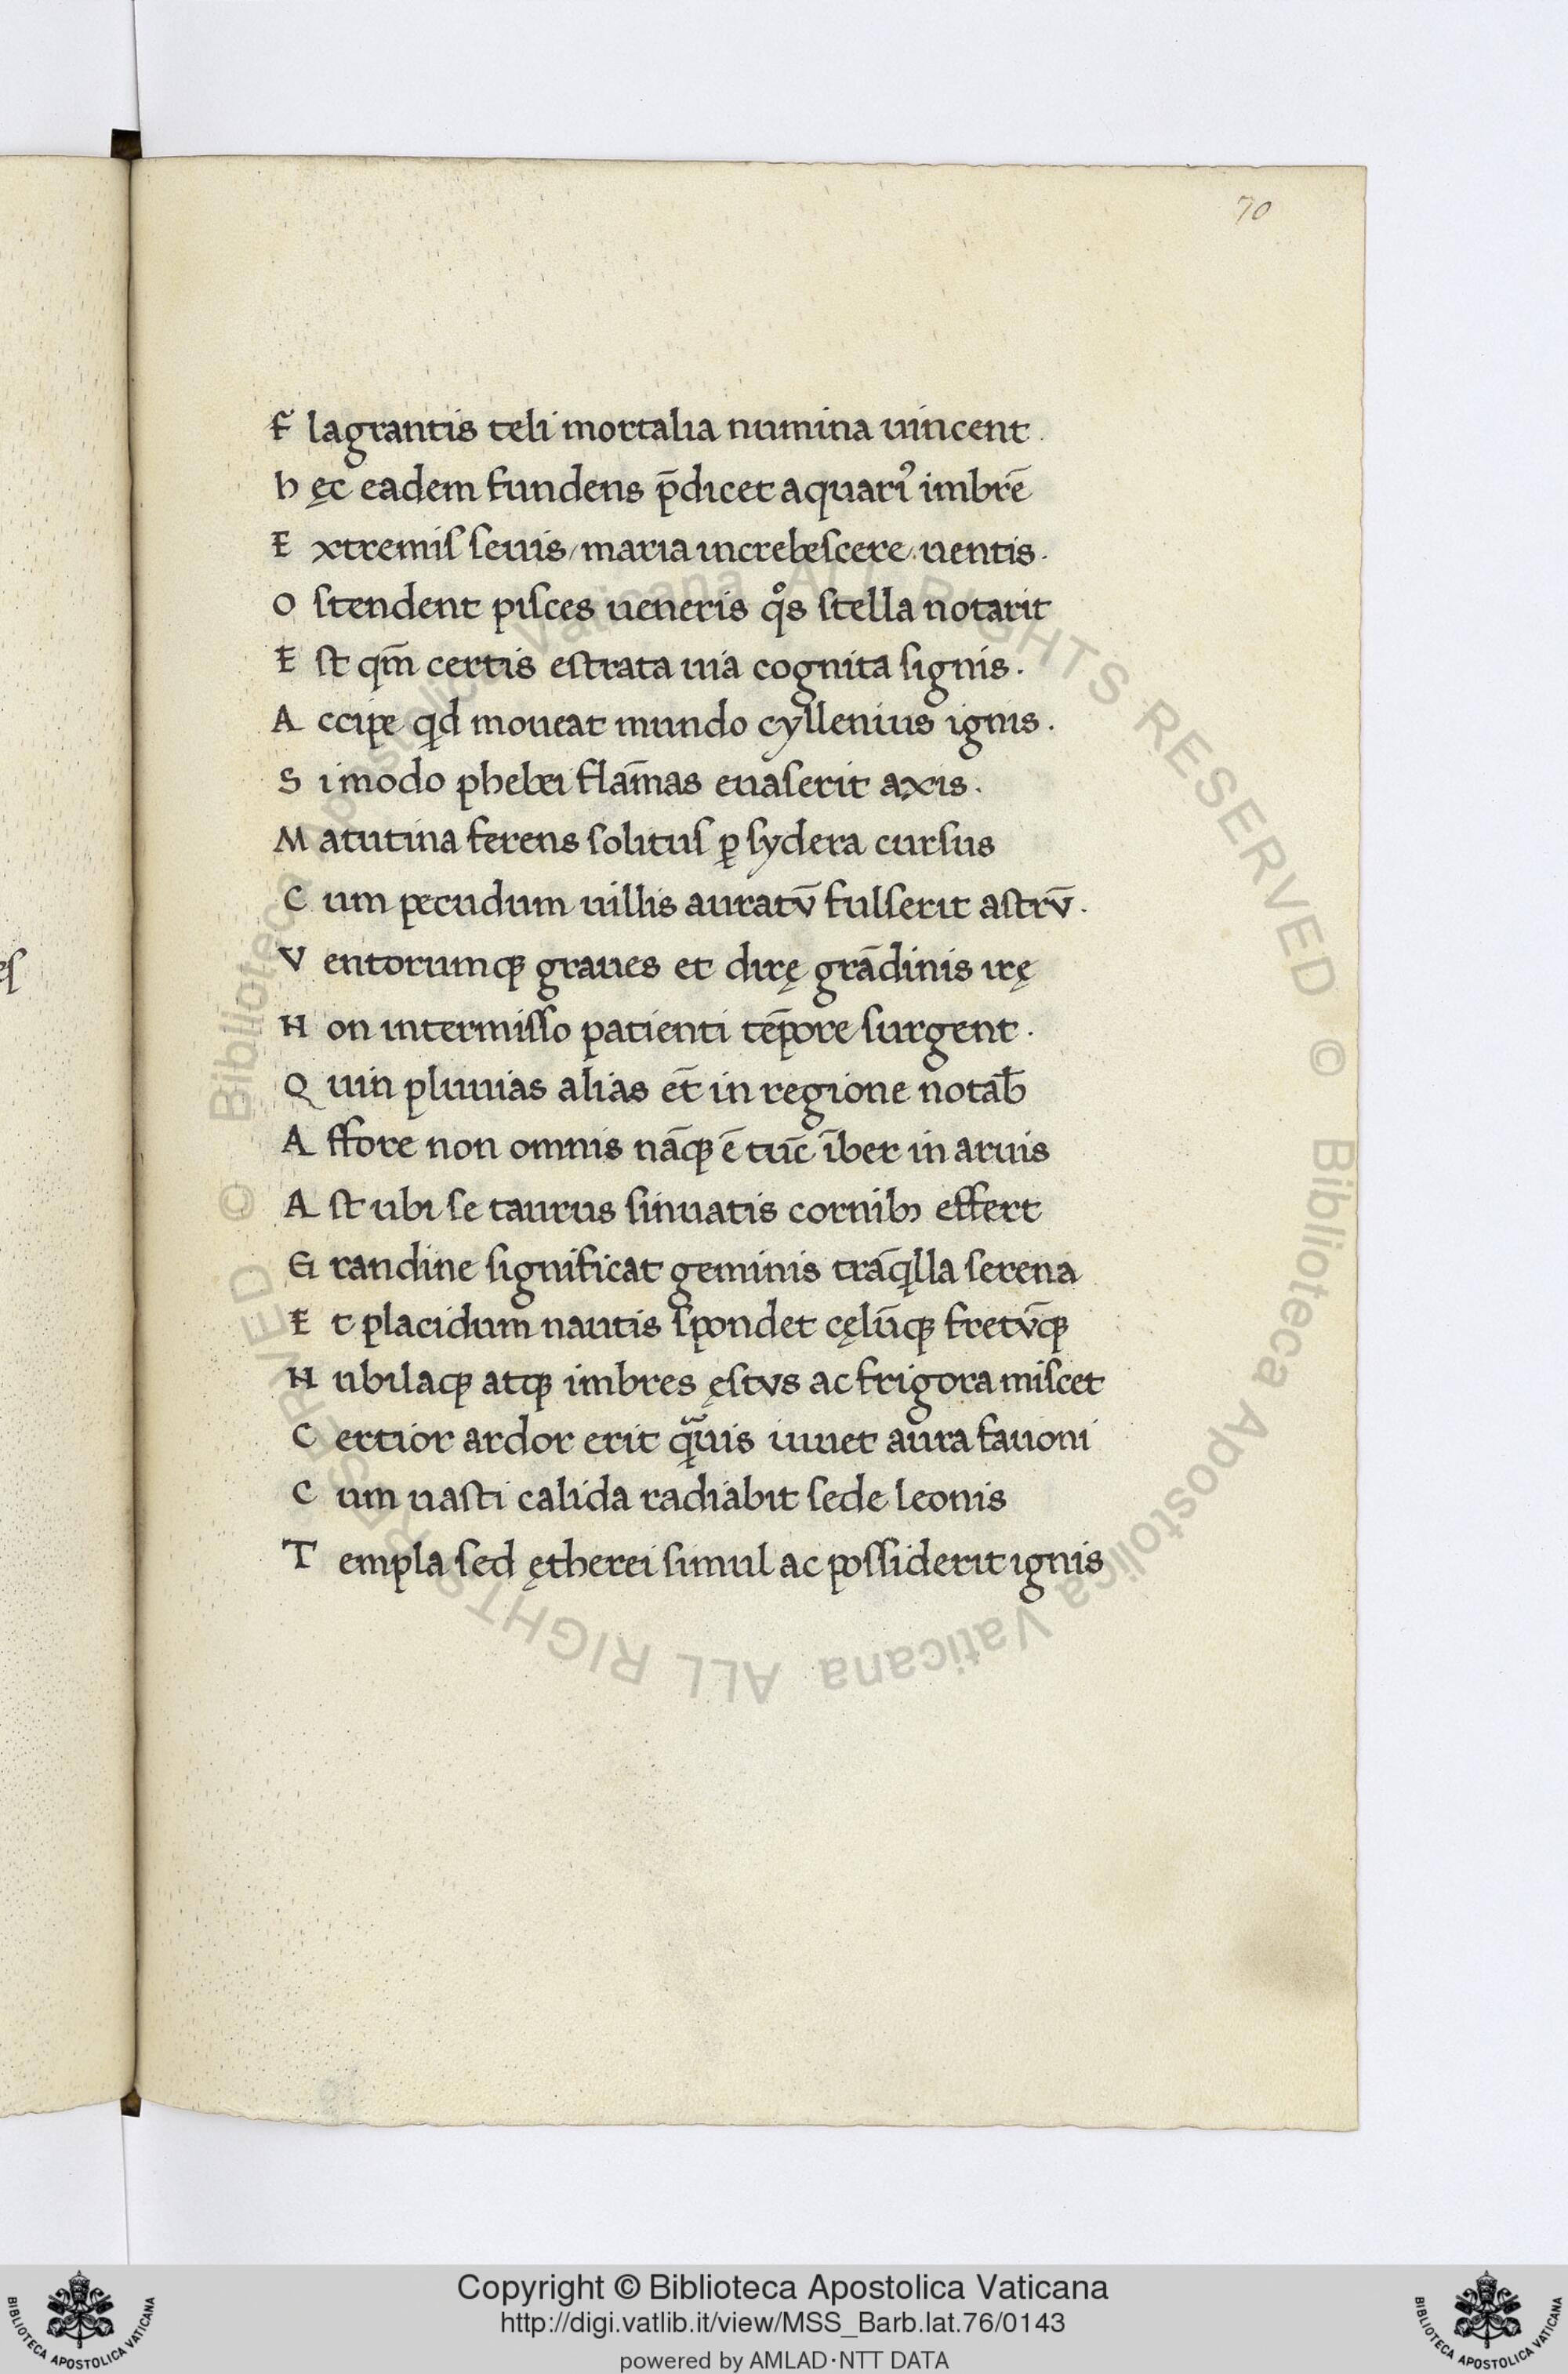 70
F lagrantis teli mortalia numina uincent.
h ęc eadem fundens p̄dicet aquariꝰ imbrē
E xtremiſ ſeuis/maria increbeſcere. uentis.
O ſtendent piſces ueneris qͦs ſtella notarit
E ſt qm̄ certis eſtrata uia cognita ſignis.
A ccipe qd moueat mundo cyllenius ignis.
S i modo phebei flam̄as euaſerit axis.
M atutina ferens ſolituſ ꝑ ſydera curſus
C um pecudum uillis auratv̄ fulſerit aſtrv̄.
V entorumqꝫ graues et dirę grādinis irę
N on intermiſſo patienti tēpore ſurgent.
Q uin pluuias alias et̄ in regione notab̄
A ffore non omnis nāqꝫ ē tūc īber in aruis
A ſt ubi ſe taurus ſinuatis cornibꝫ effert
G randine ſignificat geminis trāqlla ſerena
E t placidum nautis ſpondet cęlūqꝫ fretv̄qꝫ
N ubilaqꝫ atqꝫ imbres ęſtvs ac frigora miſcet
C ertior ardor erit qͣ̄uis iuuet aura fauoni
C um uaſti calida radiabit ſede leonis
T empla ſed ętherei ſimul ac poſſiderit ignis
eſ
© Biblioteca Apostolica Vaticana ALL RIGHTS RESERVED
© Biblioteca Apostolica Vaticana ALL RIGHTS RESERVED
Copyright © Biblioteca Apostolica Vaticana
http://digi.vatlib.it/view/MSS_Barb.lat.76/0143
powered by AMLAD·NTT DATA
BIBLIOTECA APOSTOLICA VATICANA
BIBLIOTECA APOSTOLICA VATICANA